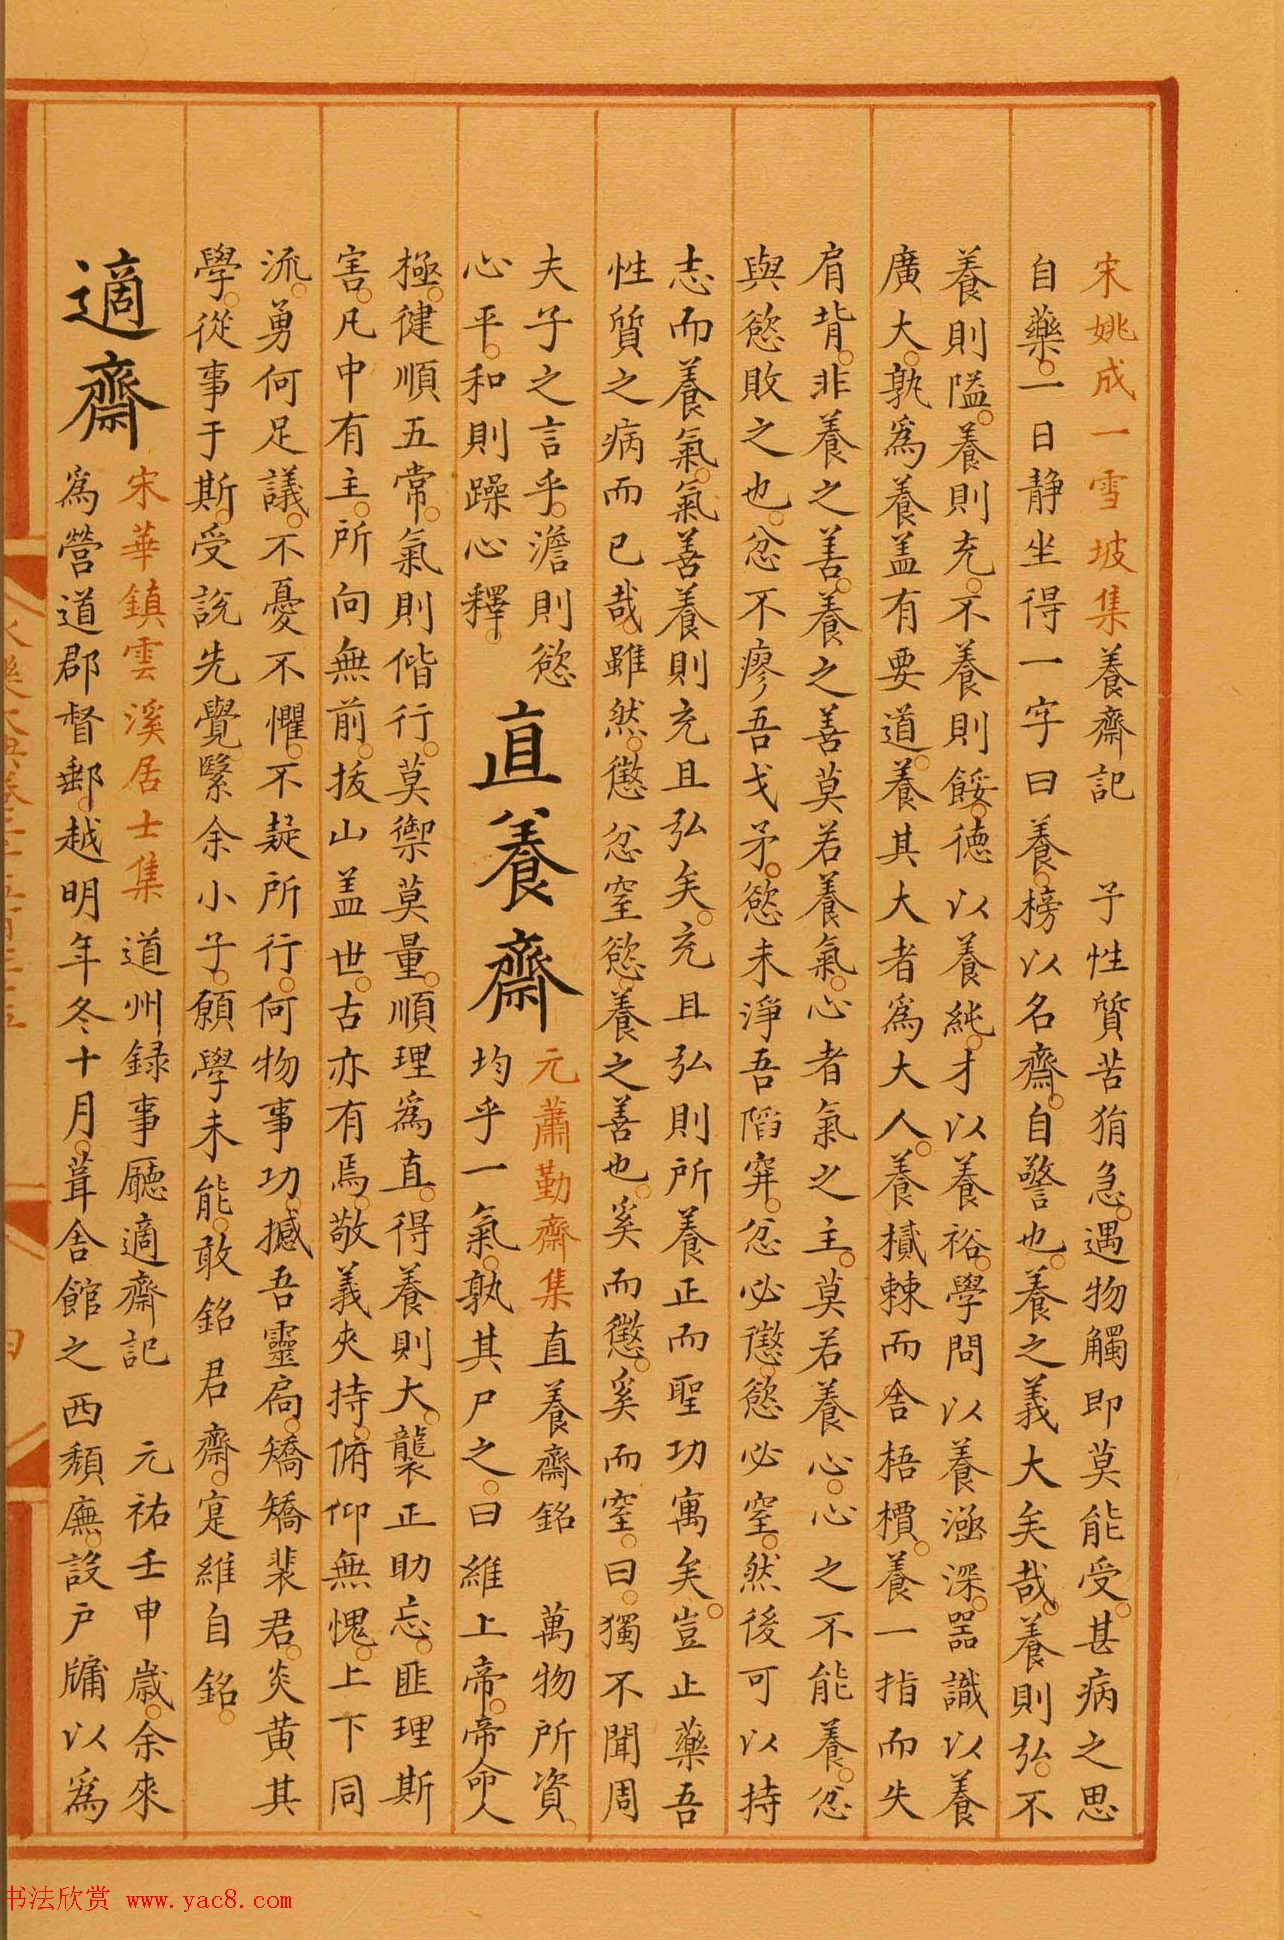 宋姚成一雪坡集養齋記 予性質苦狷急。遇物觸即莫能受。甚病之思
自藥。一日静坐得一字曰養。榜以名齋。自警也。養之義大矣哉。養則弘。不
養則隘。養則充。不養則餒。德以養純。才以養裕。學問以養涵深。器識以養
廣大。孰爲養盖有要道。養其大者爲大人。養樲棘而舍梧檟。養一指而失
肩背。非養之善。養之善莫若養氣。心者氣之主。莫若養心。心之不能養。忿
與慾敗之也。忿不瘳吾戈矛。慾未淨吾陷穽。忿必懲。慾必窒。然後可以持
志而養氣。氣善養則充且弘矣。充且弘則所養正而聖功寓矣。豈止藥吾
性質之病而已哉。雖然。懲忿窒慾。養之善也。奚而懲。奚而窒。曰。獨不聞周
夫子之言乎。澹則慾
心平。和則躁心釋。
直養齋
元蕭勤齋集直養齋銘 萬物所資。
均乎一氣。孰其尸之。曰維上帝。帝命人
極。健順五常。氣則偕行。莫禦莫量。順理爲直。得養則大。襲正助忘。匪理斯
害。凡中有主。所向無前。拔山盖世。古亦有焉。敬義夾持。俯仰無愧。上下同
流。勇何足議。不憂不懼。不疑所行。何物事功。撼吾靈扃。矯矯裴君。炎黄其
學。從事于斯。受說先覺。繄余小子。願學未能。敢銘君齋。寔維自銘。
適齋
宋華鎮雲溪居士集 道州録事廳適齋記 元祐壬申歲。余來
爲營道郡督郵。越明年冬十月。葺舍館之西頹廡。設戶牖以爲
书法欣赏 www.yac8.com